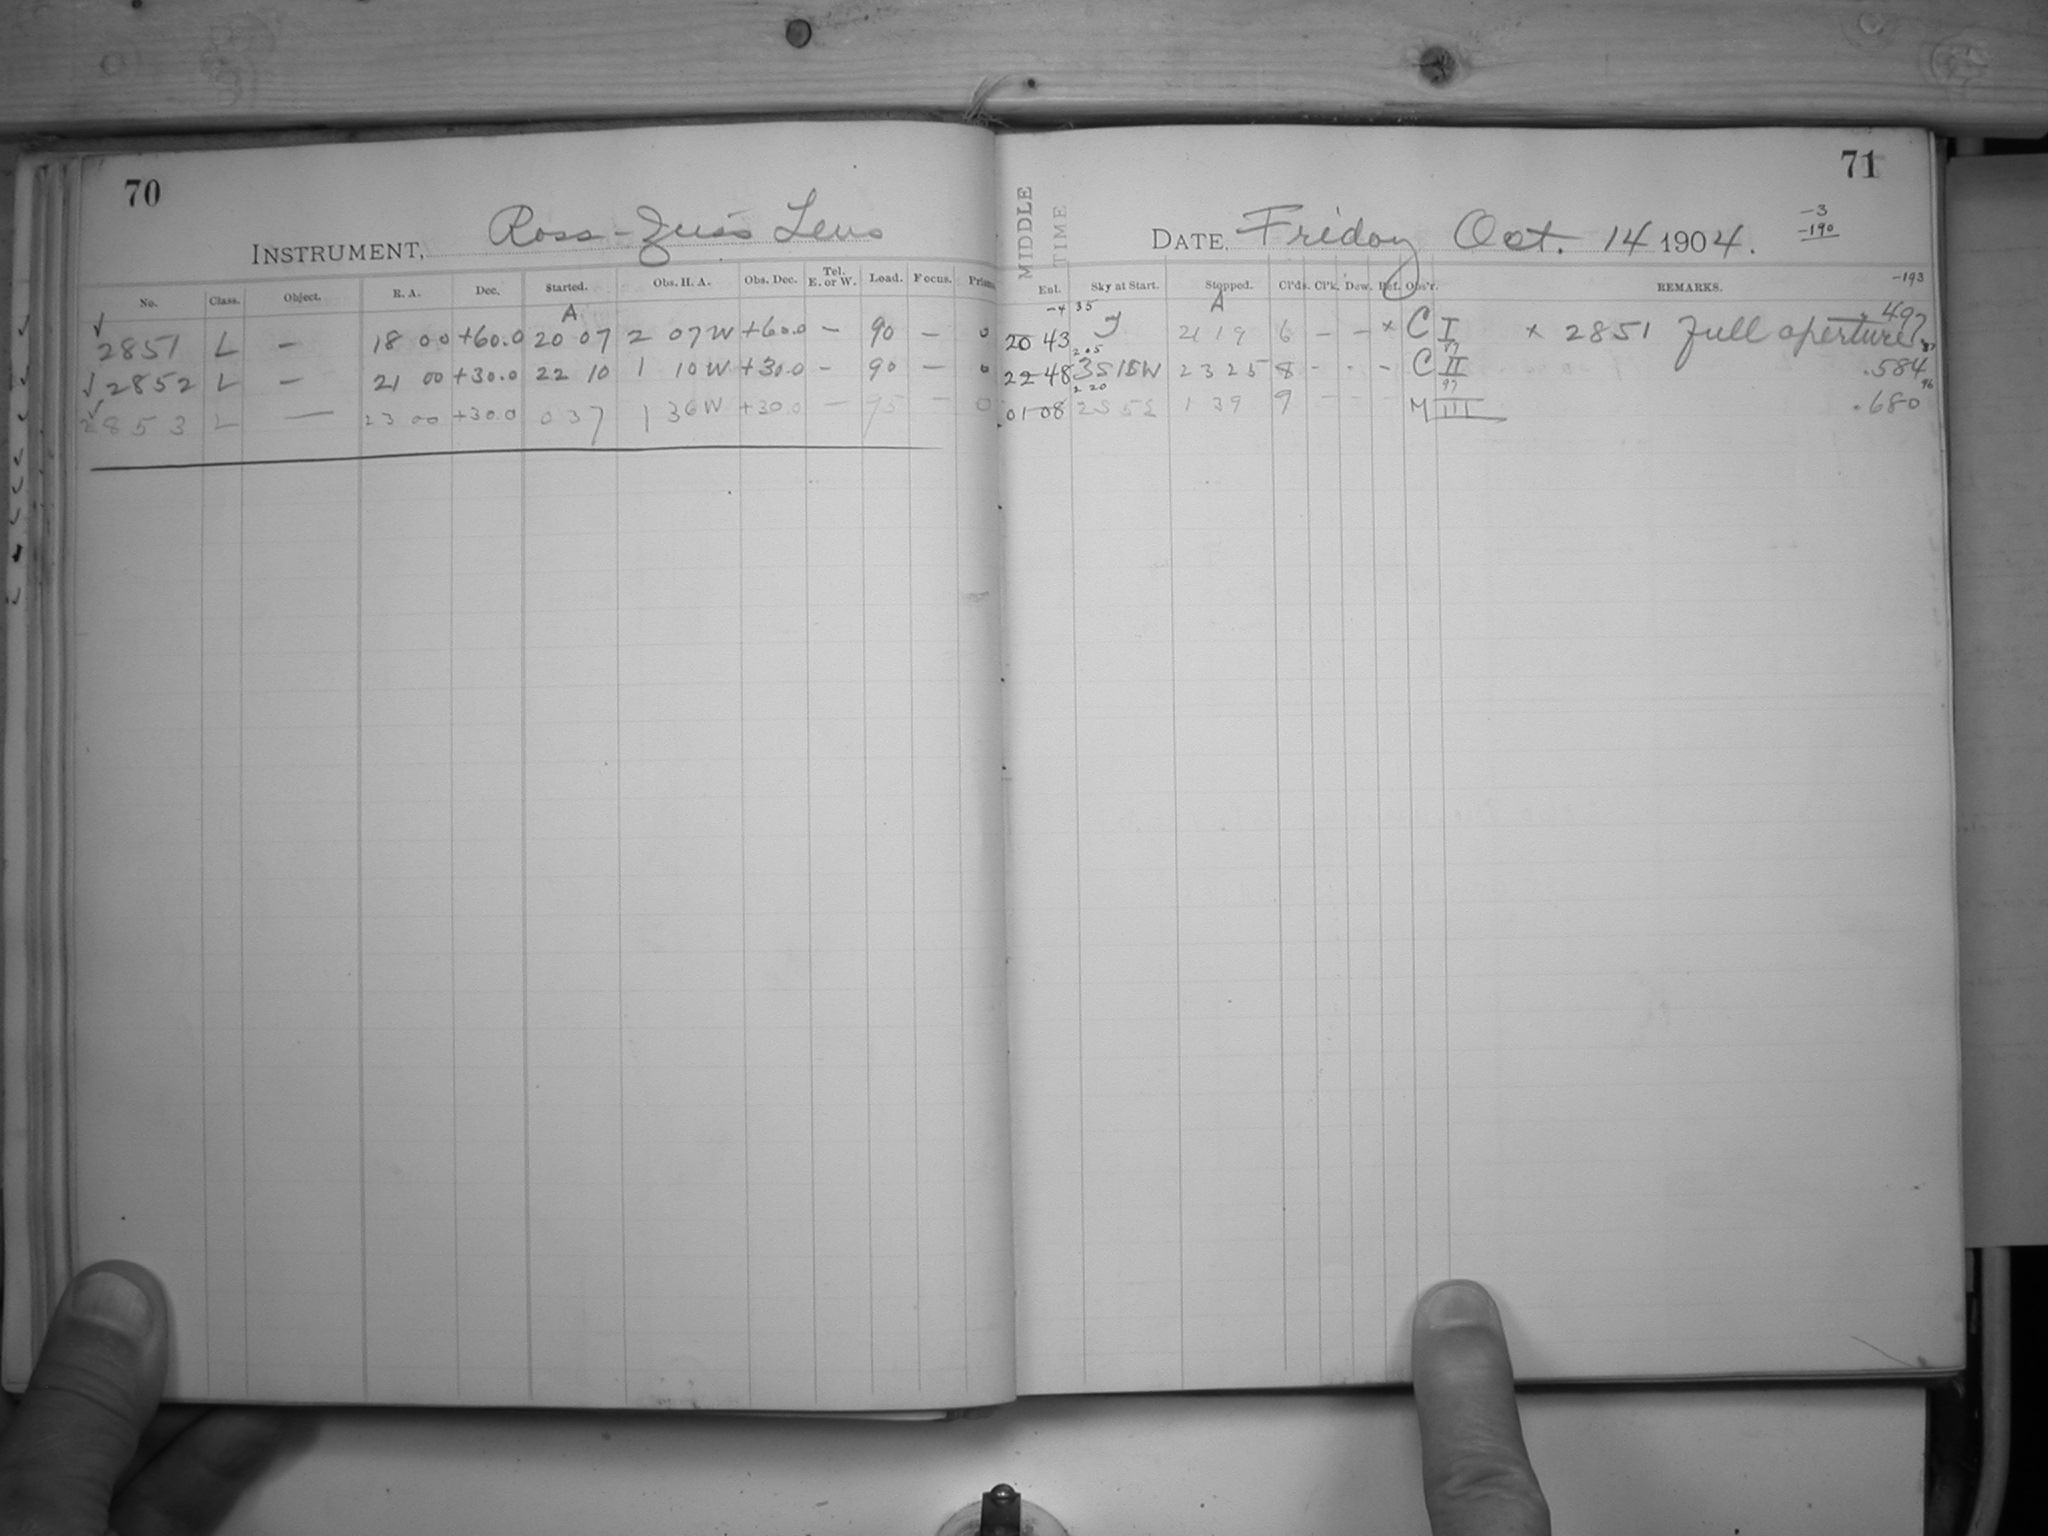 70
INSTRUMENT, Ross-Zeiss Lens
No. Class. Object. R. A. Dec. Started. Obs. H. A. Obs. Dec. Tel. E. or W. Load. Focus. Prism
A
✓ 2851 L — 18 00 +60.0 20 07 2 07 W +60.0 — 90 — 0
✓ 2852 L — 21 00 +30.0 22 10 1 10 W +30.0 — 90 — 0
✓ 2853 L — 23 00 +30.0 0 37 1 36 W +30.0 — 95 — 0
71
MIDDLE TIME
DATE, Friday Oct. 14 1904.
-3
-190
-193
Ent. Sky at Start. Stopped. Cl'ds. Cl'k. Dew. Ref. Obs'r. REMARKS.
-4 35 A
20 43 21 19 6 — — x C I x 2851 full aperture .497
205 97 87
22 48 3515W 23 25 8 - - - C II .584
220 97 96
01 08 1 39 9 - - - M III .680